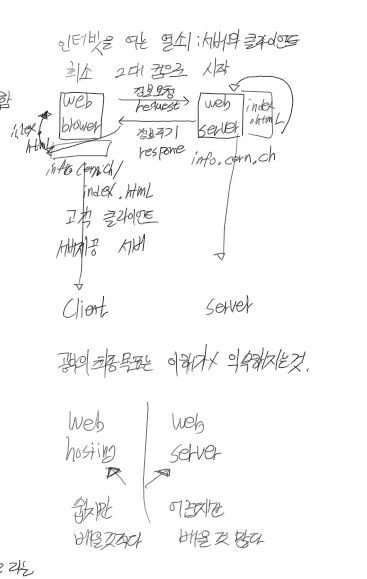 인터넷을 여는 열쇠 : 서버와 클라이언트
최소 2대 컴으로 시작
함
web
browser
정보요청
request
web
server
index
.html
index.
html
정보주기
respone
info.cern.ch/
index.html
info.cern.ch
고객 클라이언트
서버제공 서버
Client
server
공부의 최종목표는 이해가X 익숙해지는것.
web
hosting
web
server
쉽지만
배울것적다
어렵지만
배울 것 많다
라는